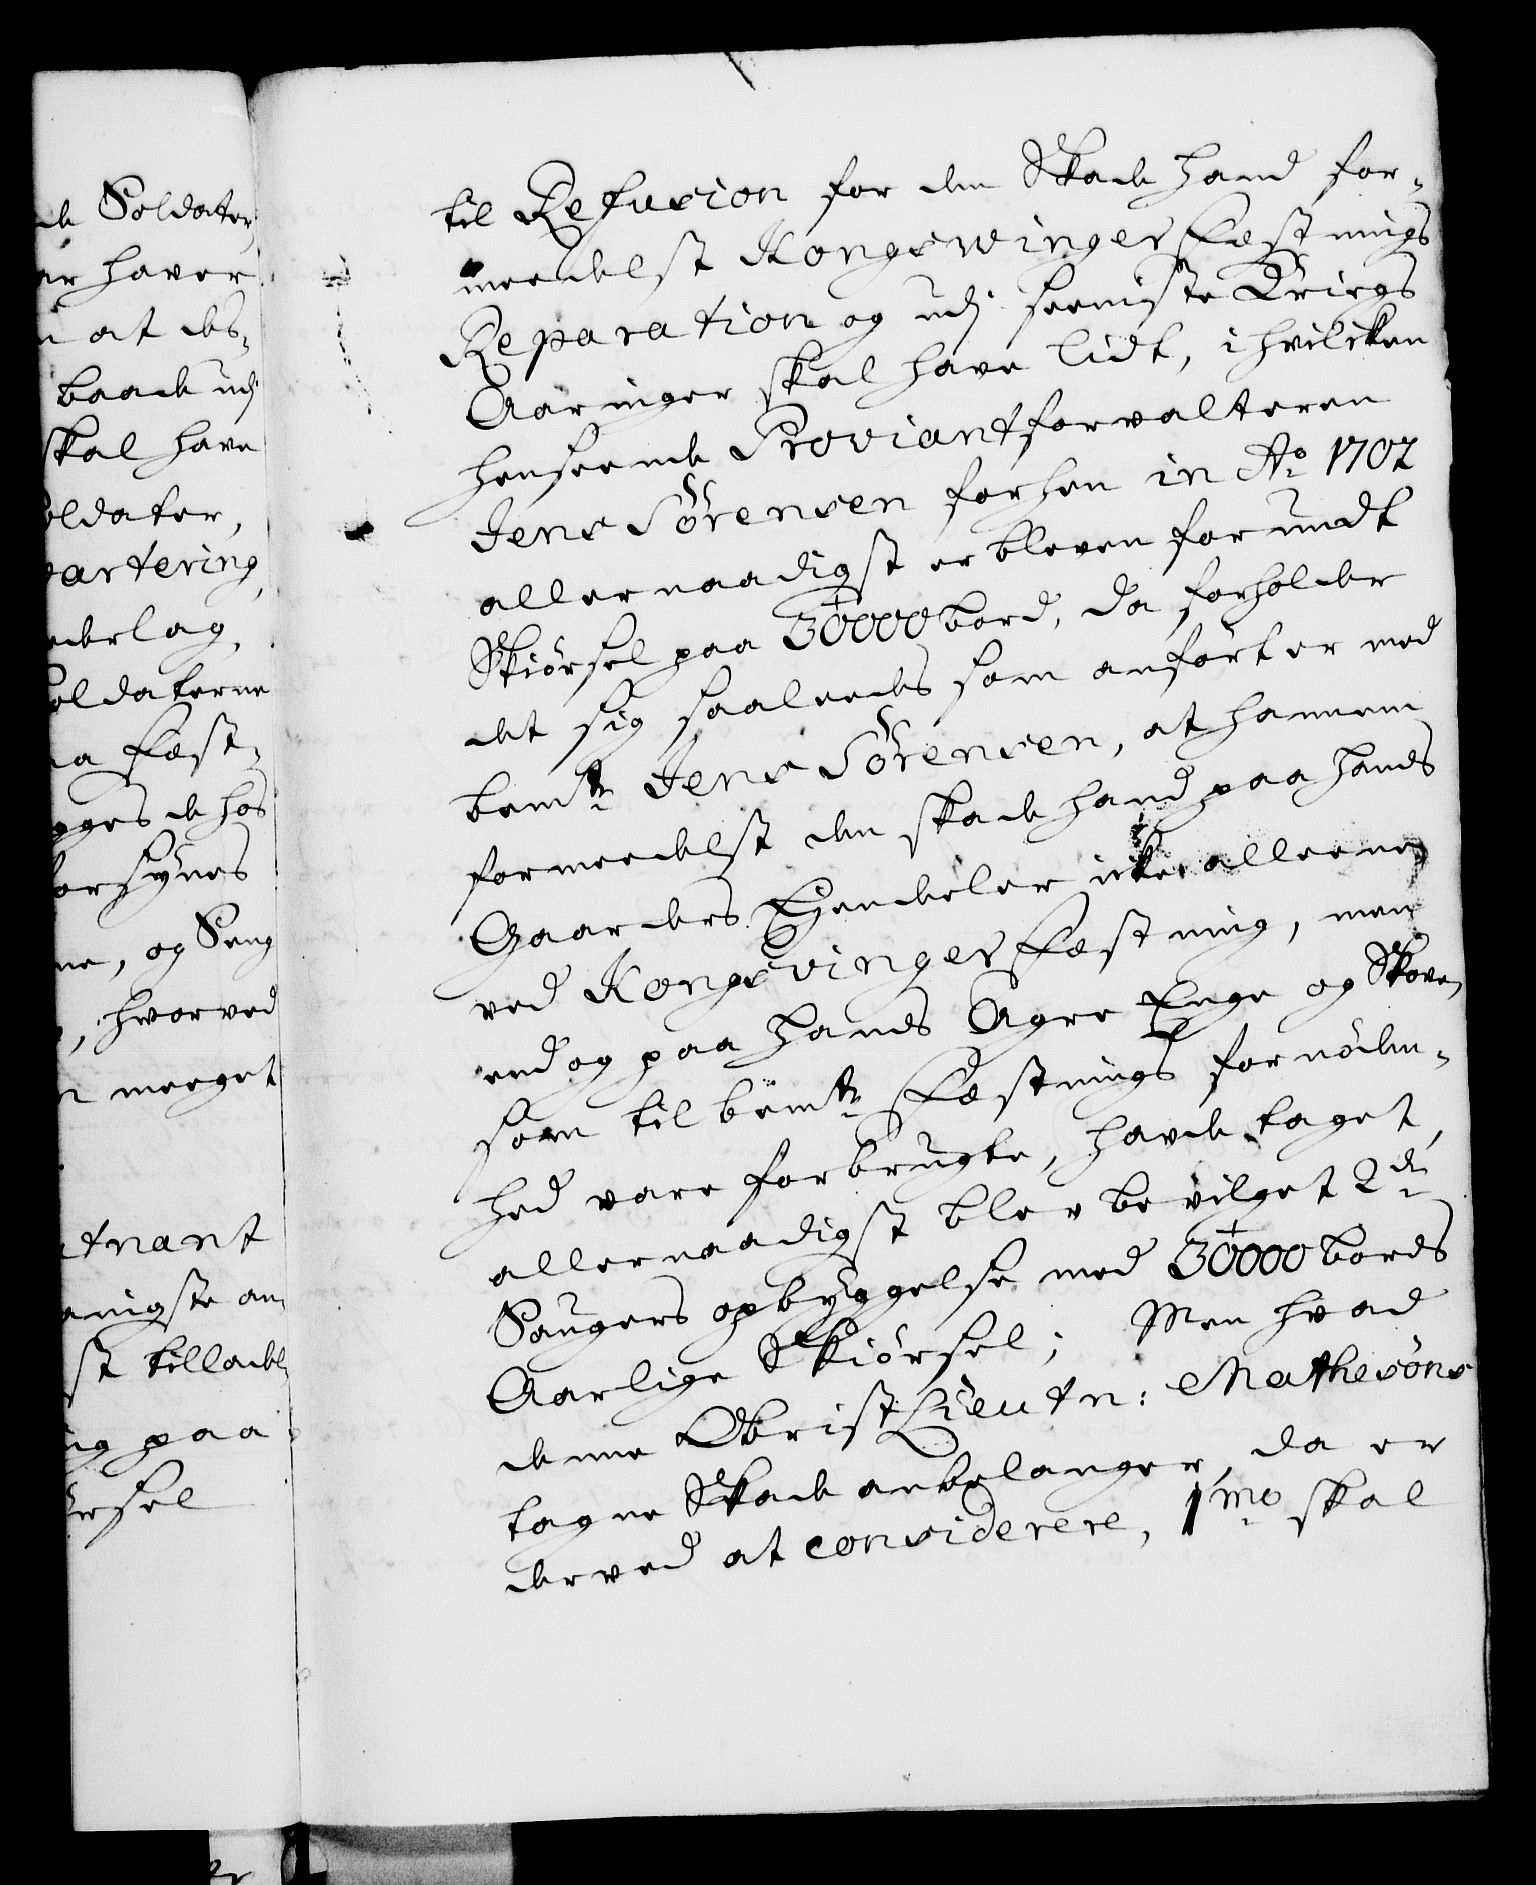 de Soldater
er haver
n at des-
baade udj
skal have
oldater,
artering,
ederlag,
oldaterne
a Fæst-
gges de hos
forsÿnes
ne, og Seng
, hvorved
n meeget
tnant
nigste an-
st tillade
ng paa
ørsel
til Refusion for den Skade hand for-
meedelst Kongswinger Fæstnings
Reparation og udj seeniste Kriegs
Aaringer skal have lidt, i hvilcken
henseende Proviantforvalteren
Jens Sørensen forhen in Ao 1702
allernaadigst er bleven forundt
Skiørsel paa 30000 bord, da forholder
det sig saaleedes som anført er med
bemte Jens Sørensen, at hannem
formeedelst den skade hand paa hands
Gaarders Eyendeler icke alleene
ved Kongsvinger Fæstning, men
end og paa hands Agre Enge og Skove,
som til bemte Fæstnings fornøden-
hed vare forbrugte, havde taget,
allernaadigst blev bevilget 2de
Saugers opbÿggelse med 30000 bords
Aarlige Skiørsel; Men hvad
denne Obrist Lieutn: Mathesøns
tagne Skade anbelanger, da er
derved at considerere, 1mo skal